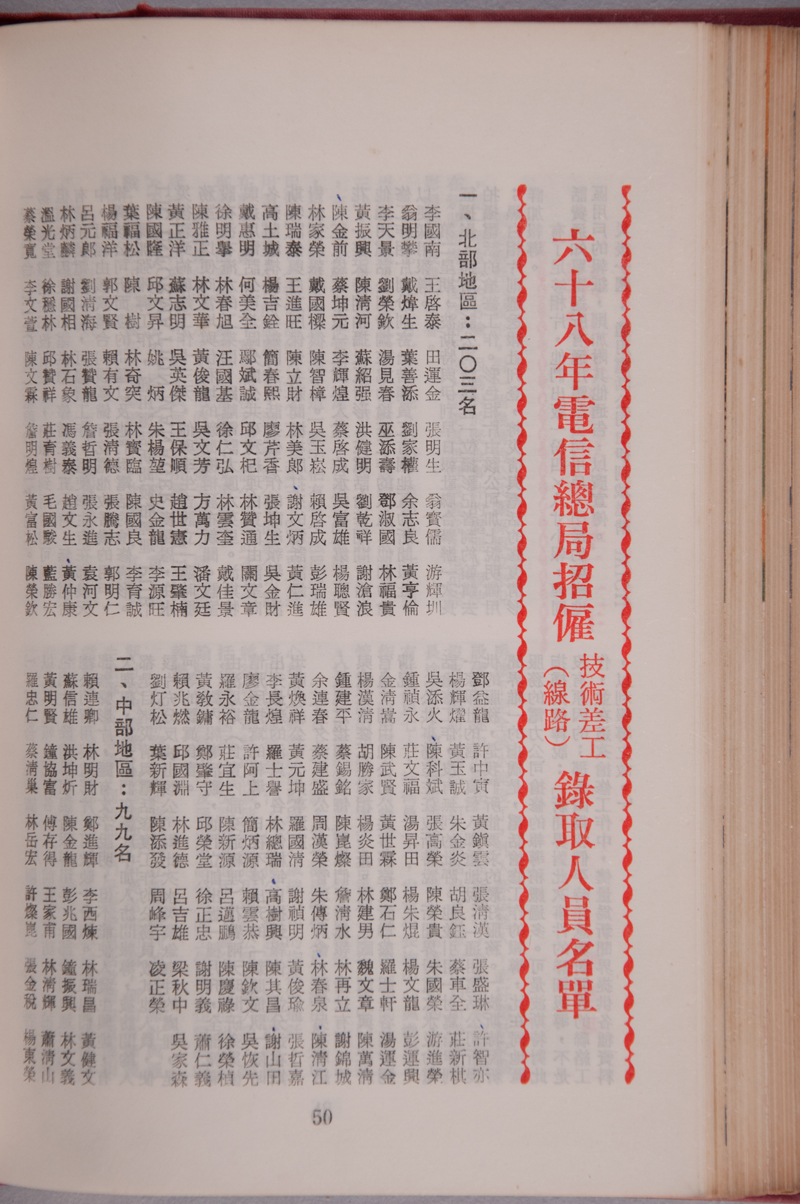 六十八年電信總局招僱技術差工（線路）錄取人員名單
一、北部地區：二〇三名
李國南 王啓泰 田運金 張明生 翁寶儒 游輝圳
翁明攀 戴煒生 葉善添 劉家權 余志良 黃亨倫
李天景 劉榮欽 湯見春 巫添壽 鄧淑國 林福貴
黃振興 陳清河 蘇紹强 洪健明 劉乾祥 謝滄浪
陳金前 蔡坤元 李輝煌 蔡啓成 吳富雄 楊聰賢
林家榮 戴國樑 陳智樟 吳玉崧 賴啓成 彭瑞雄
陳瑞泰 王進旺 陳立財 林美郎 謝文炳 黃仁進
高土城 楊吉銓 簡春熙 廖芹香 張坤生 吳金財
戴惠明 何美全 鄢斌誠 邱文杞 林贊通 關文章
徐明擧 林春旭 汪國基 徐仁弘 林雲奎 戴佳景
陳雅正 林文華 黃俊龍 吳文芳 方萬力 潘文廷
黃正洋 蘇志明 吳英傑 王保順 趙世憲 王肇楠
陳國隆 邱文昇 姚炳 朱楊堃 史金龍 李源旺
葉福松 陳樹 林奇突 林寶臨 陳國良 李育誠
楊福洋 郭文賢 賴有文 張清德 張騰志 郭明仁
呂元郎 劉清海 張贊龍 詹哲明 張永進 袁河文
林炳麟 謝國相 林石象 馮義泰 趙文生 黃仲康
溫光堂 邱贊祥 莊育樹 毛國駿 藍勝宏
蔡榮寬 李文萱 陳文霖 詹明煌 黃富松 陳榮欽
鄧燊龍 許中寅 黃鎭雲 張清漢 張盛琳 許智亦
楊輝煌 黃玉誠 朱金炎 胡良鈺 蔡車全 莊新棋
吳添火 陳科斌 張高榮 陳榮貴 朱國榮 游進榮
鍾禎永 莊文福 湯昇田 楊朱焜 楊文龍 彭運興
金淸嵩 陳武賢 黃世霖 鄭石仁 羅士軒 湯運金
楊漢清 胡勝家 楊炎田 林建男 魏文章 陳萬清
鍾建平 蔡錫銘 陳崑燦 詹淸水 林再立 謝錦城
余連春 蔡建盛 周漢榮 朱傳炳 林春泉 陳清江
黃煥祥 黃元坤 羅國清 謝禎明 黃俊瑜 張哲嘉
李長煌 羅士譽 林總瑞 高樹興 陳其昌 謝山田
廖金龍 許阿上 簡炳源 賴雲恭 陳欽文 吳恢先
羅永裕 莊宜生 陳新源 呂邁鵬 陳慶祿 徐榮楨
黃敎鏞 鄭肇守 邱榮堂 徐正忠 謝明義 蕭仁義
賴兆燃 邱國淵 林進德 呂吉雄 梁秋中 吳家森
劉灯松 葉新輝 陳添發 周峰宇 凌正榮
二、中部地區：九九名
賴連卿 林明財 鄭進輝 李西煉 林瑞昌 黃健文
蘇信雄 洪坤炘 陳金龍 彭兆國 鐘振興 林文義
黃明賢 鐘協富 傅存得 王家甫 林清輝 蕭清山
羅忠仁 蔡清巢 林岳宏 許燦崑 張金稅 楊東榮
50